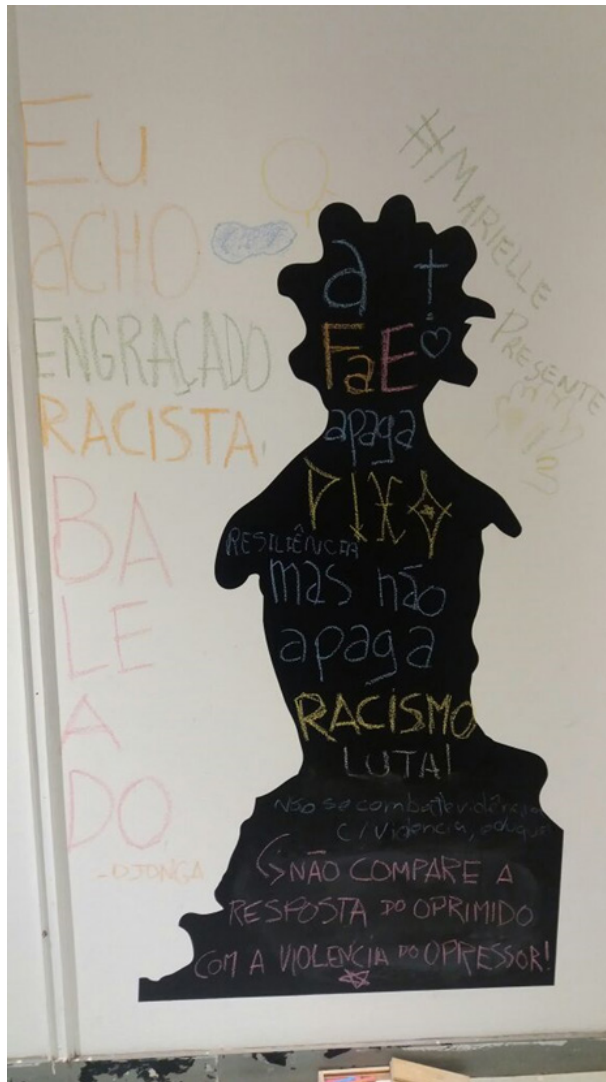 EU
aCHO
ENGRAÇADO
RACISTA
BA
LE
A
DO
-DJONGA
#MARIELLE
PRESENTE
a
FaE
apaga
PIXO
RESILIÊNCIA
mas não
apaga
RACISMO
LUTA!
Não se combate violência
c/ violência, eduque
NÃO COMPARE A
RESPOSTA DO OPRIMIDO
COM A VIOLENCIA DO OPRESSOR!